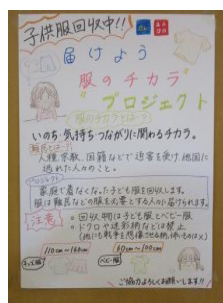 子供服回収中!!
届けよう
服のチカラ"
プロジェクト
服のチカラとは…?
いのち・気持ち・つながりに関わるチカラ。
難民とは…?
人種、宗教、国籍などで迫害を受け、他国に
逃れた人々のこと。
家庭で着なくなった子ども服を回収します。
服は難民などの服を必要とする人々に届けられます。
注意
回収物は子ども服とベビー服
ドクロや迷彩柄などは禁止。
110cm~160cm
60cm~100cm
キッズ服
ベビー服
ご協力よろしくお願いします!!